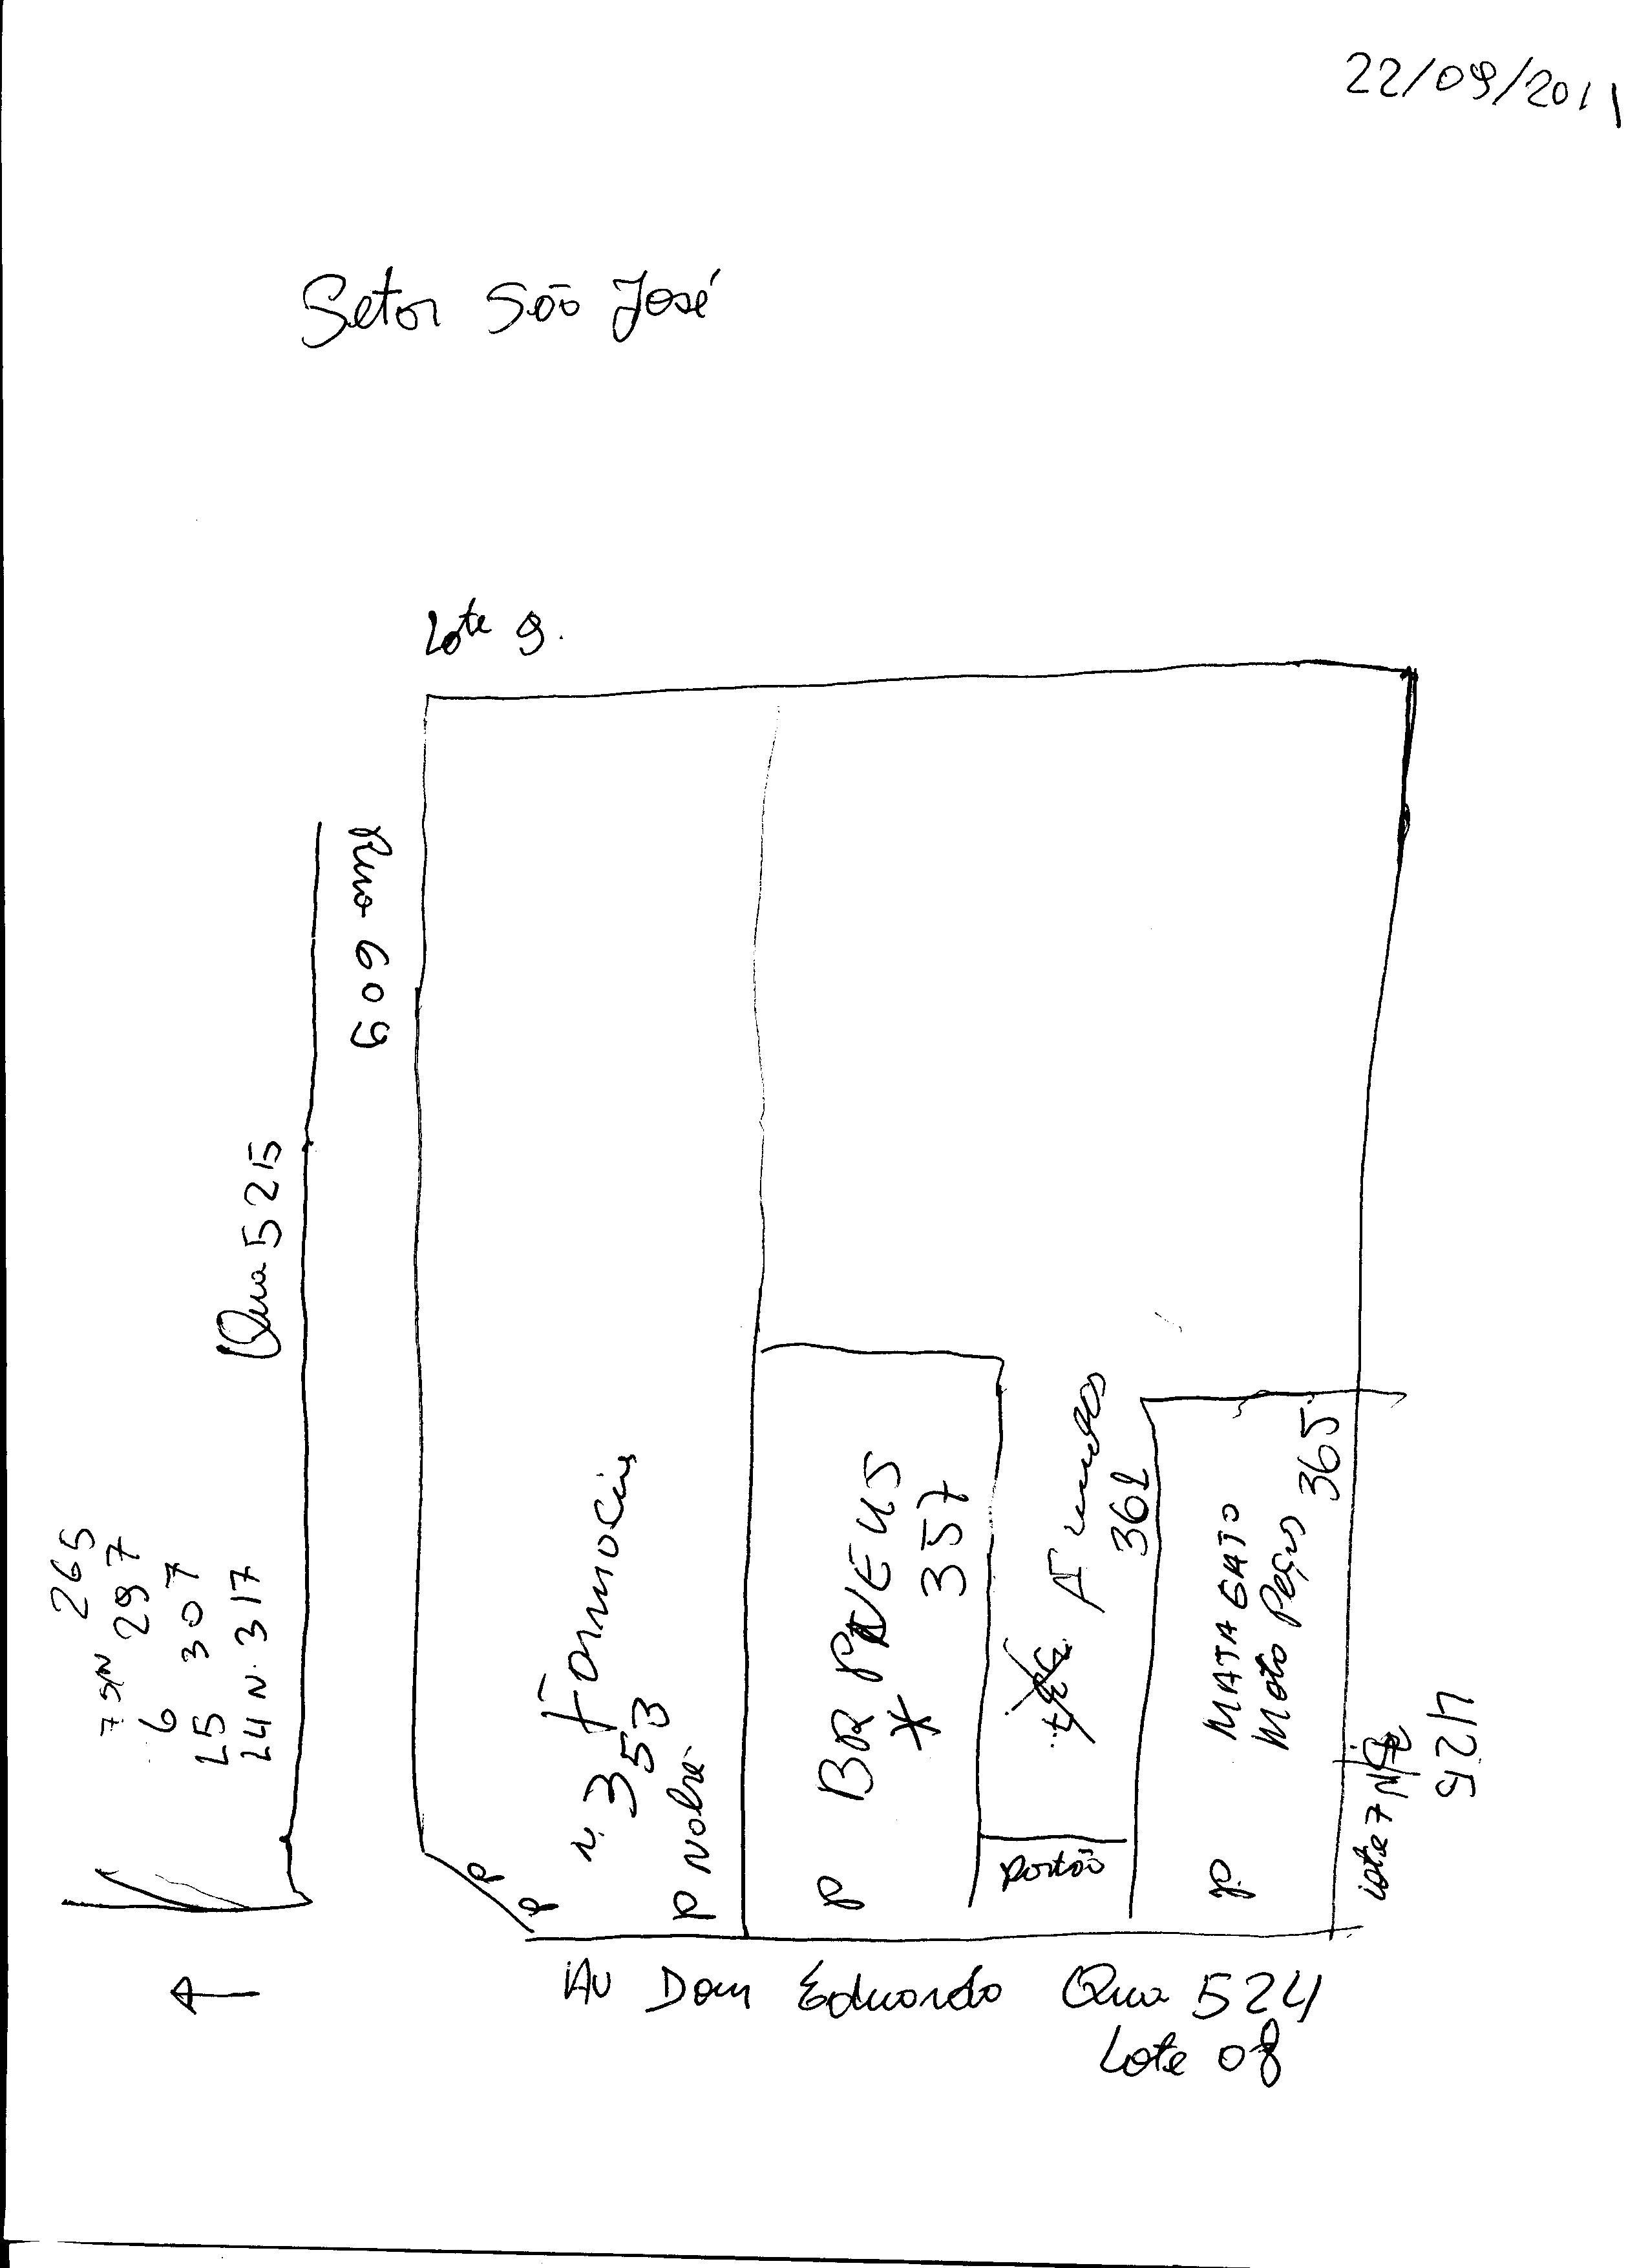 22/09/2011
Setor São José
Lote 9.
Rua 609
Qua 525
265
7 S/N 297
6 307
25 307
24 N. 317
Farmacia
N. 353
P Nobre
P
P
P BR PNEUS
*
357
361
Portão
P MATA GATO
Moto Peças 365
Lote 7 Nº
425
Av Dom Eduardo Qua 524
Lote 08